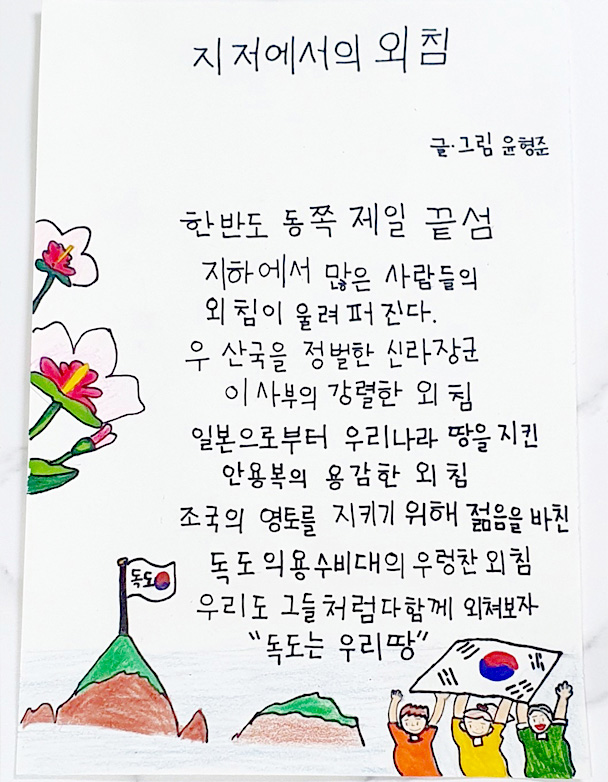 지저에서의 외침
글·그림 윤형준
한반도 동쪽 제일 끝섬
지하에서 많은 사람들의
외침이 울려퍼진다.
우산국을 정벌한 신라장군
이사부의 강렬한 외침
일본으로부터 우리나라 땅을 지킨
안용복의 용감한 외침
조국의 영토를 지키기 위해 젊음을 바친
독도의용수비대의 우렁찬 외침
우리도 그들처럼 다함께 외쳐보자
"독도는 우리땅"
독도